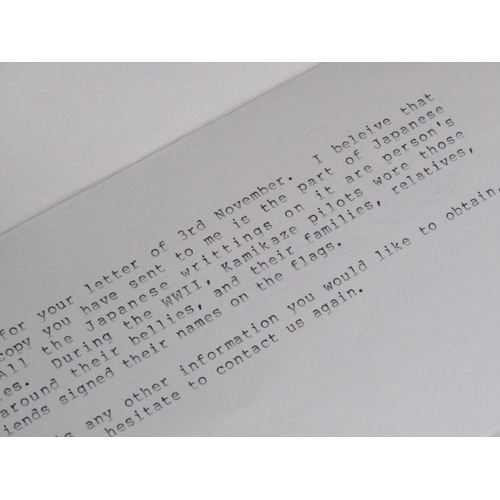 for your letter of 3rd November. I beleive that
copy you have sent to me is the part of Japanese
All the Japanese writtings on it are person's
es. During the WWII, Kamikaze pilots wore those
around their bellies, and their families, relatives,
iends signed their names on the flags.
s any other information you would like to obtain,
hesitate to contact us again.